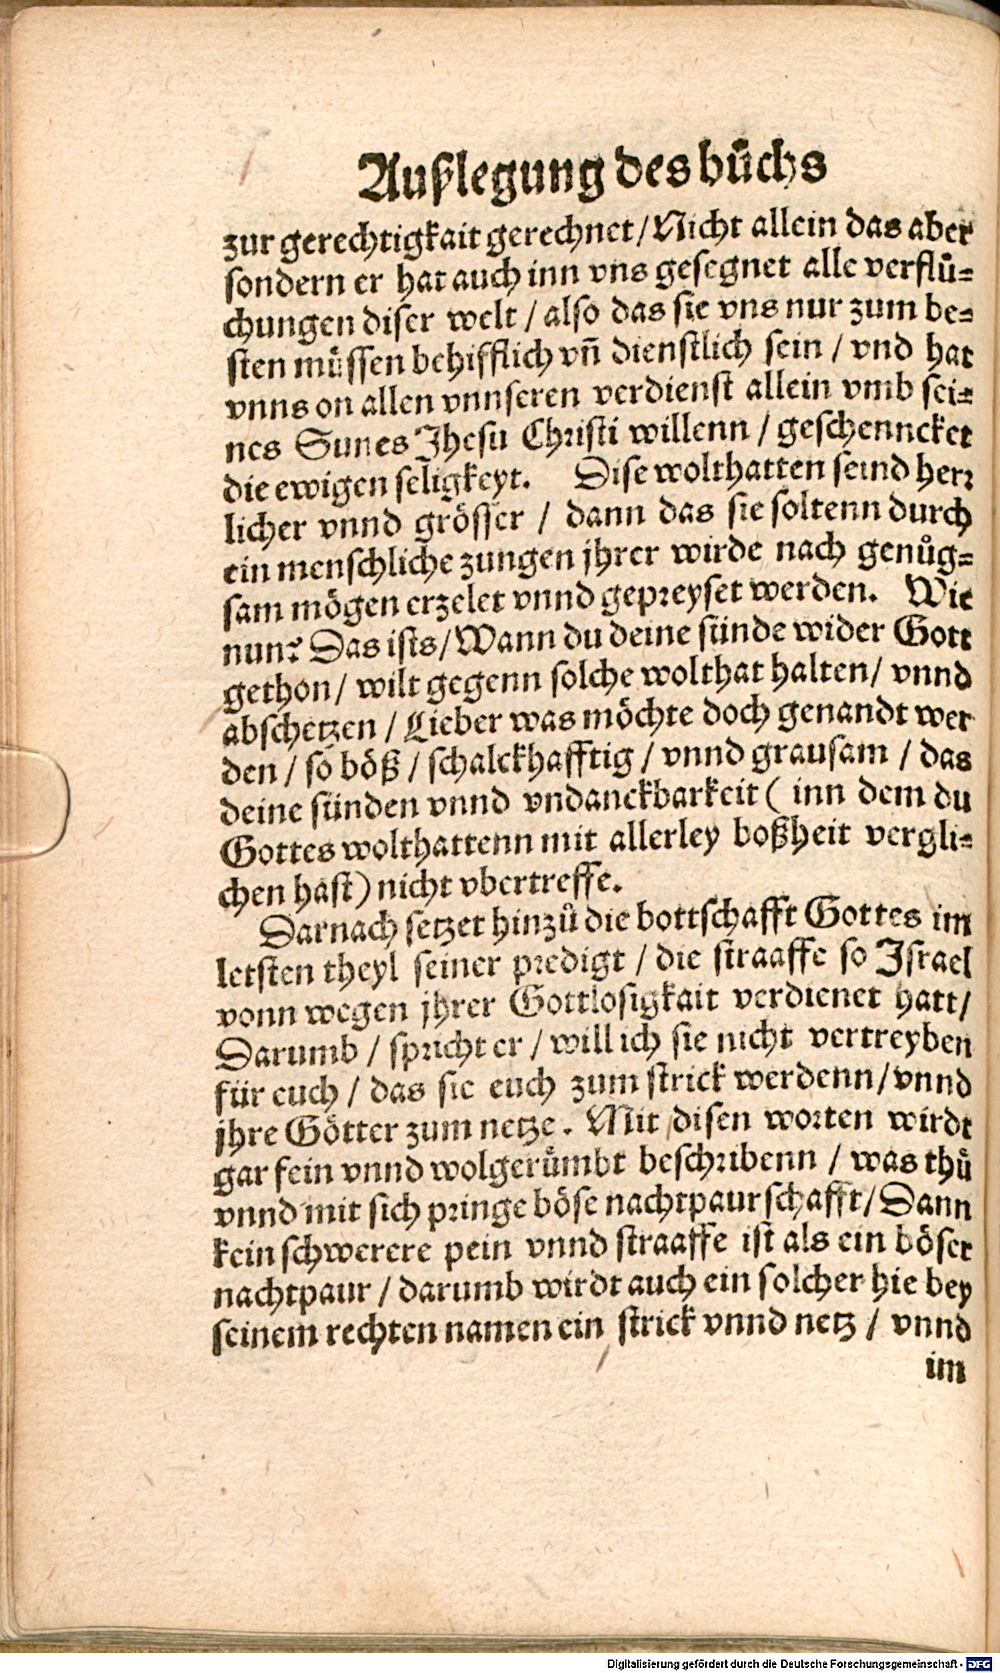 Außlegung des bůchs
zur gerechtigkait gerechnet / Nicht allein das aber
sondern er hat auch inn vns gesegnet alle verflů-
chungen diser welt / also das sie vns nur zum be-
sten müssen behifflich vñ dienstlich sein / vnd hat
vnns on allen vnnseren verdienst allein vmb sei-
nes Sunes Jhesu Christi willenn / geschenncket
die ewigen seligkeyt. Dise wolthatten seind herr
licher vnnd grösser / dann das sie soltenn durch
ein menschliche zungen jhrer wirde nach genůg-
sam mögen erzelet vnnd gepreyset werden. Wie
nun? Das ists / Wann du deine sünde wider Gott
gethon / wilt gegenn solche wolthat halten / vnnd
abschetzen / Lieber was möchte doch genandt wer
den / so böß / schalckhafftig / vnnd grausam / das
deine sünden vnnd vndanckbarkeit ( inn dem du
Gottes wolthattenn mit allerley boßheit vergli-
chen hast ) nicht vbertreffe.
Darnach setzet hinzů die bottschafft Gottes im
letsten theyl seiner predigt / die straaffe so Israel
vonn wegen jhrer Gottlosigkait verdienet hatt /
Darumb / spricht er / will ich sie nicht vertreyben
für euch / das sie euch zum strick werdenn / vnnd
jhre Götter zum netze. Mit disen worten wirdt
gar fein vnnd wolgerümbt beschribenn / was thů
vnnd mit sich pringe böse nachtpaurschafft / Dann
kein schwerere pein vnnd straaffe ist als ein böser
nachtpaur / darumb wirdt auch ein solcher hie bey
seinem rechten namen ein strick vnnd netz / vnnd
im
Digitalisierung gefördert durch die Deutsche Forschungsgemeinschaft - DFG